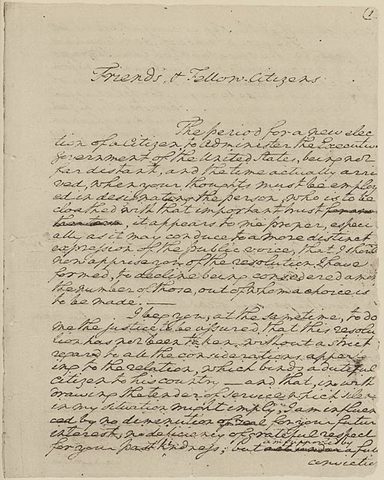 (1
Friends, & Fellow-Citizens
The period for a new elec
tion of a Citizen, to administer the Executive
Government of the United States, being not
far distant, and the time actually arri
ved, when your thoughts must be employ
ed in designating the person, who is to be
cloathed with that important trust
it appears to me proper, especi
ally as it may conduce to a more distinct
expression of the public voice, that I should
now apprise you of the resolution I have
formed, to decline being considered among
the number of those, out of whom a choice is
to be made.
I beg you, at the same time, to do
me the justice to be assured, that this resolu
tion has not been taken, without a strict
regard to all the considerations apper
taining to the relation, which binds a dutiful
Citizen to his country — and that, in with
drawing the tender of service which silence
in my situation might imply, I am influen
ced by no diminution of zeal for your future
interest, no deficiency of grateful respect
for your past kindness; but am supported by a full
conviction